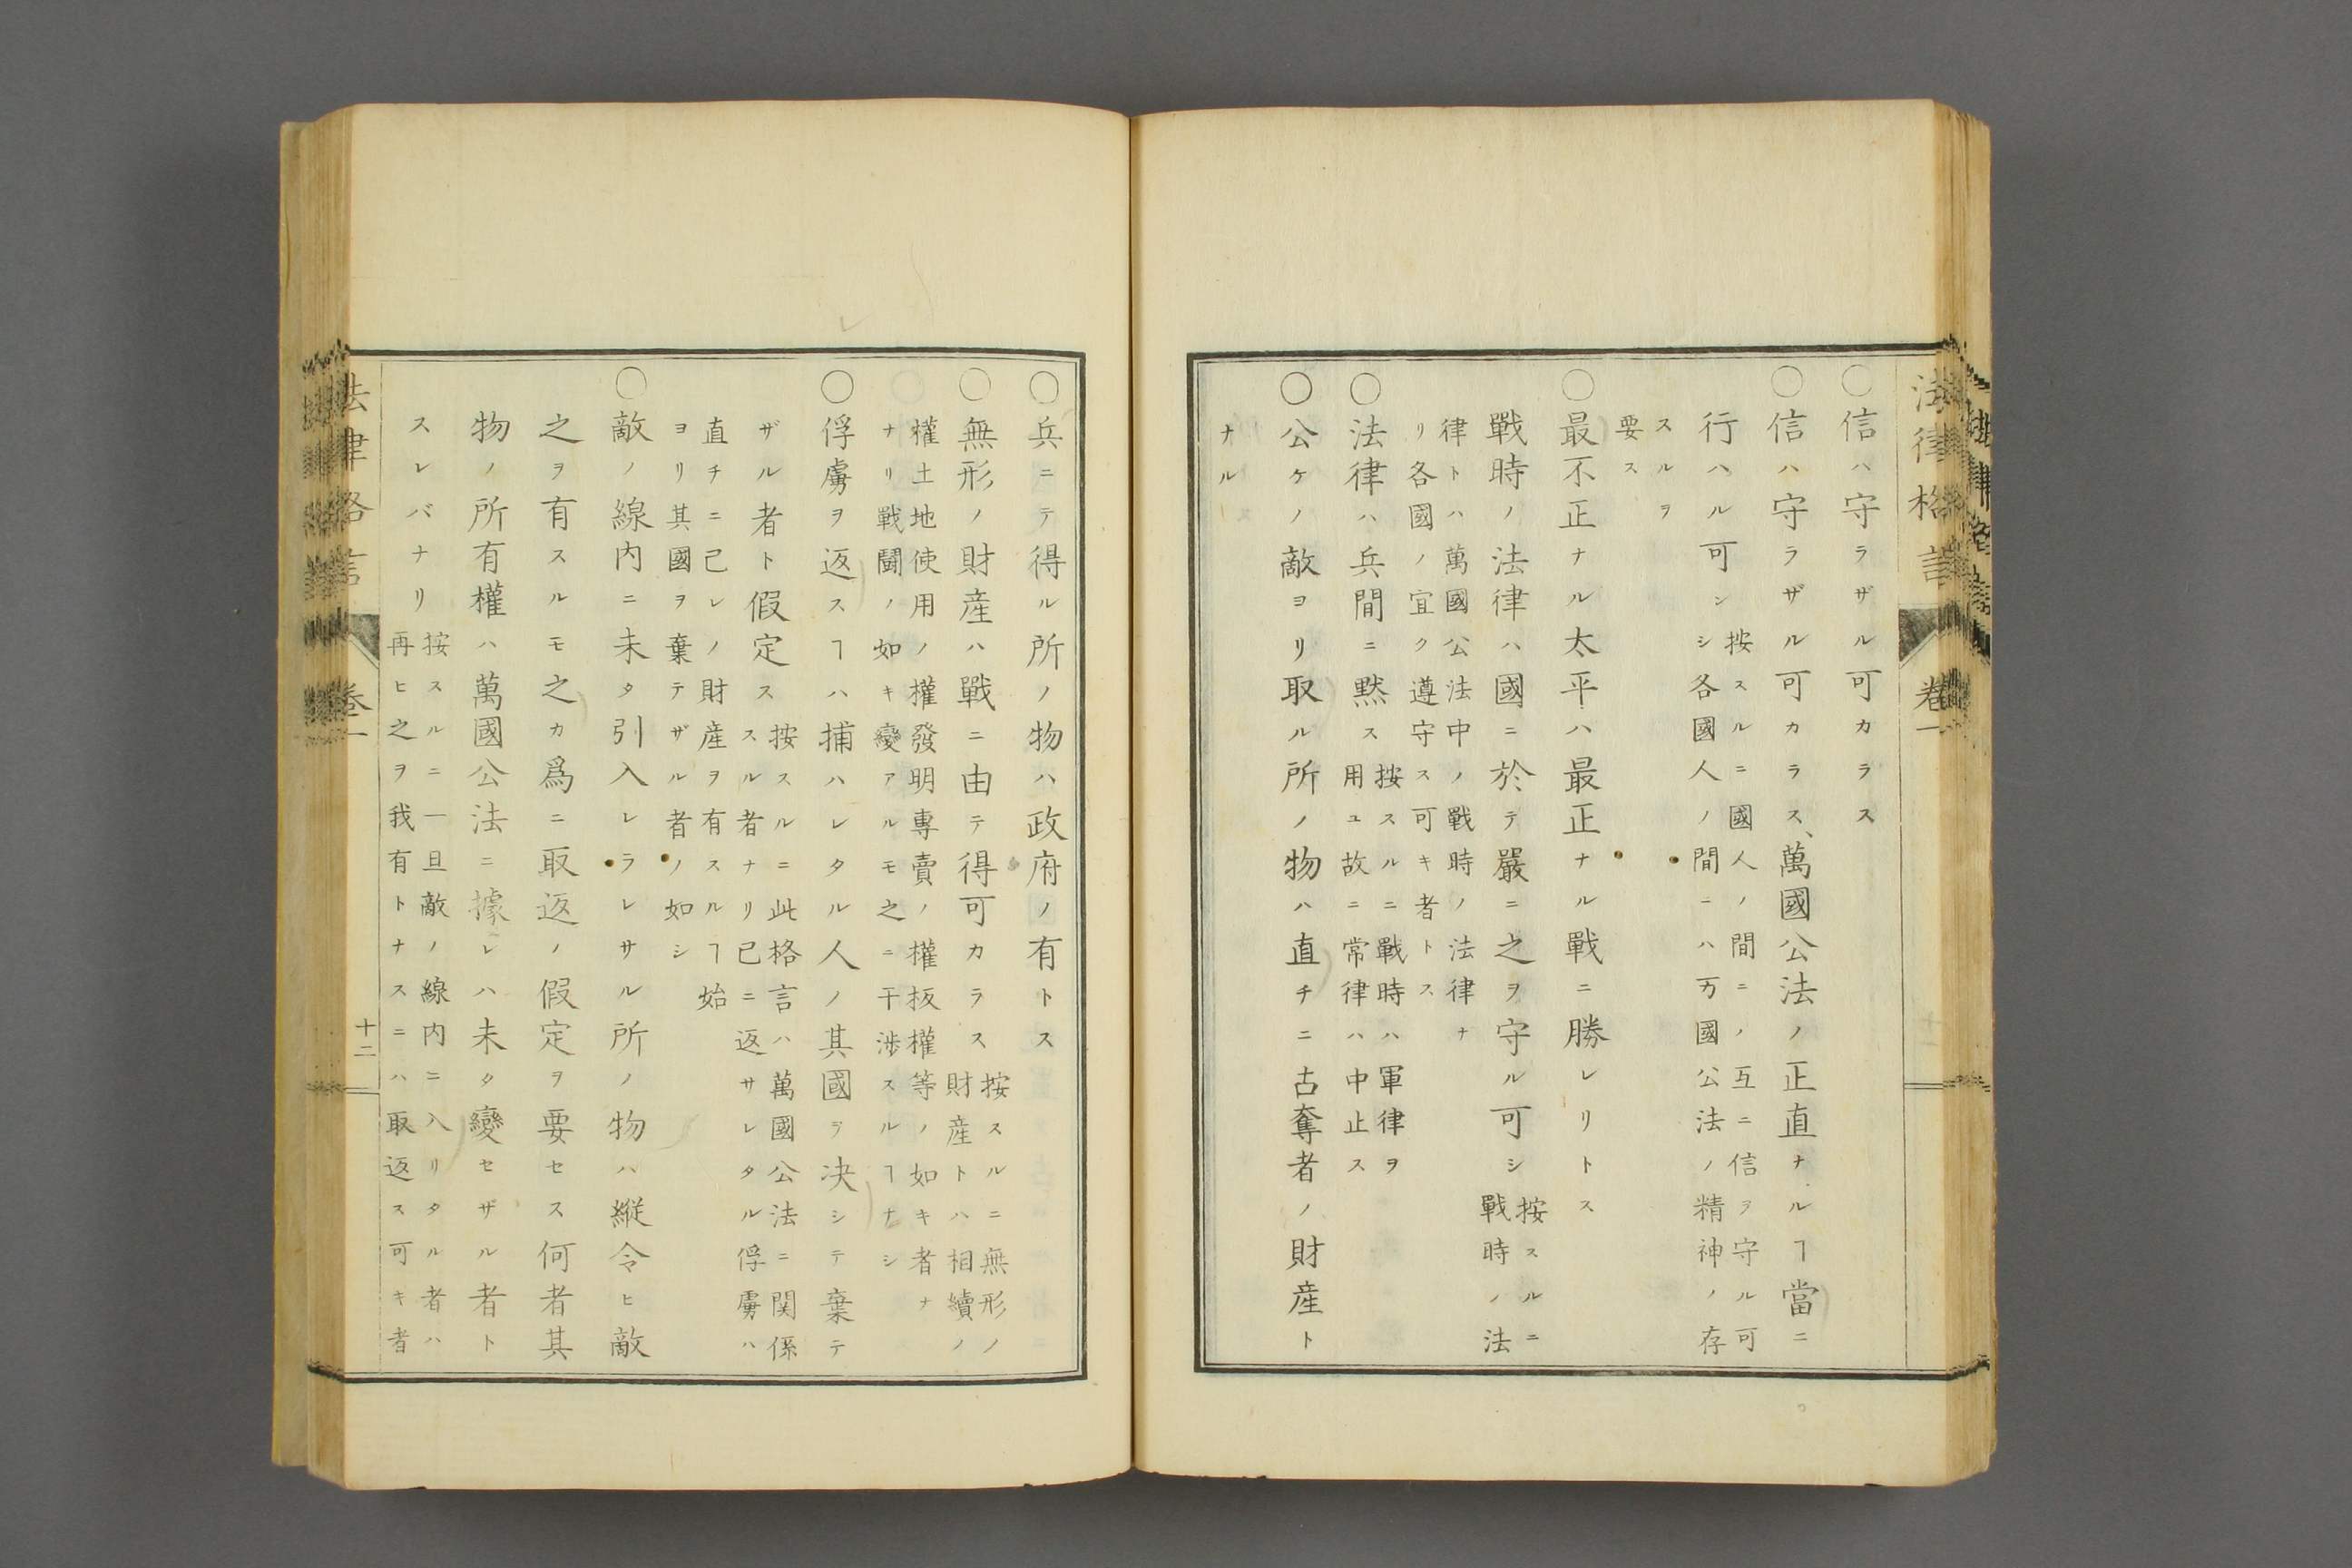 法律格言
卷一
〇信ハ守ラザル可カラス
〇信ハ守ラザル可カラス、萬國公法ノ正直ナルヿ當ニ
行ハル可シ
按スルニ國人ノ間ニノ互ニ信ヲ守ル可
シ各國人ノ間ニハ万國公法ノ精神ノ存
スルヲ
要ス
〇最不正ナル太平ハ最正ナル戰ニ勝レリトス
戰時ノ法律ハ國ニ於テ嚴ニ之ヲ守ル可シ
按スルニ
戰時ノ法
律トハ萬國公法中ノ戰時ノ法律ナ
リ各國ノ宜ク遵守ス可キ者トス
〇法律ハ兵間ニ黙ス
按スルニ戰時ハ軍律ヲ
用ユ故ニ常律ハ中止ス
〇公ケノ敵ヨリ取ル所ノ物ハ直チニ古奪者ノ財産ト
ナル
〇兵ニテ得ル所ノ物ハ政府ノ有トス
〇無形ノ財産ハ戰ニ由テ得可カラス
按スルニ無形ノ
財産トハ相續ノ
權土地使用ノ權發明專賣ノ權板權等ノ如キ者ナ
ナリ戰鬪ノ如キ變アルモ之ニ干渉スルヿナシ
〇俘虜ヲ返スヿハ捕ハレタル人ノ其國ヲ决シテ棄テ
ザル者ト假定ス
按スルニ此格言ハ萬國公法ニ関係
スル者ナリ已ニ返サレタル俘虜ハ
直チニ己レノ財産ヲ有スルヿ始
ヨリ其國ヲ棄テザル者ノ如シ
〇敵ノ線内ニ未タ引入レラレサル所ノ物ハ縱令ヒ敵
之ヲ有スルモ之カ爲ニ取返ノ假定ヲ要セス何者其
物ノ所有權ハ萬國公法ニ據レハ未タ變セザル者ト
スレバナリ
按スルニ一旦敵ノ線内ニ入リタル者ハ
再ヒ之ヲ我有トナスニハ取返ス可キ者
法律格言
卷一
十二